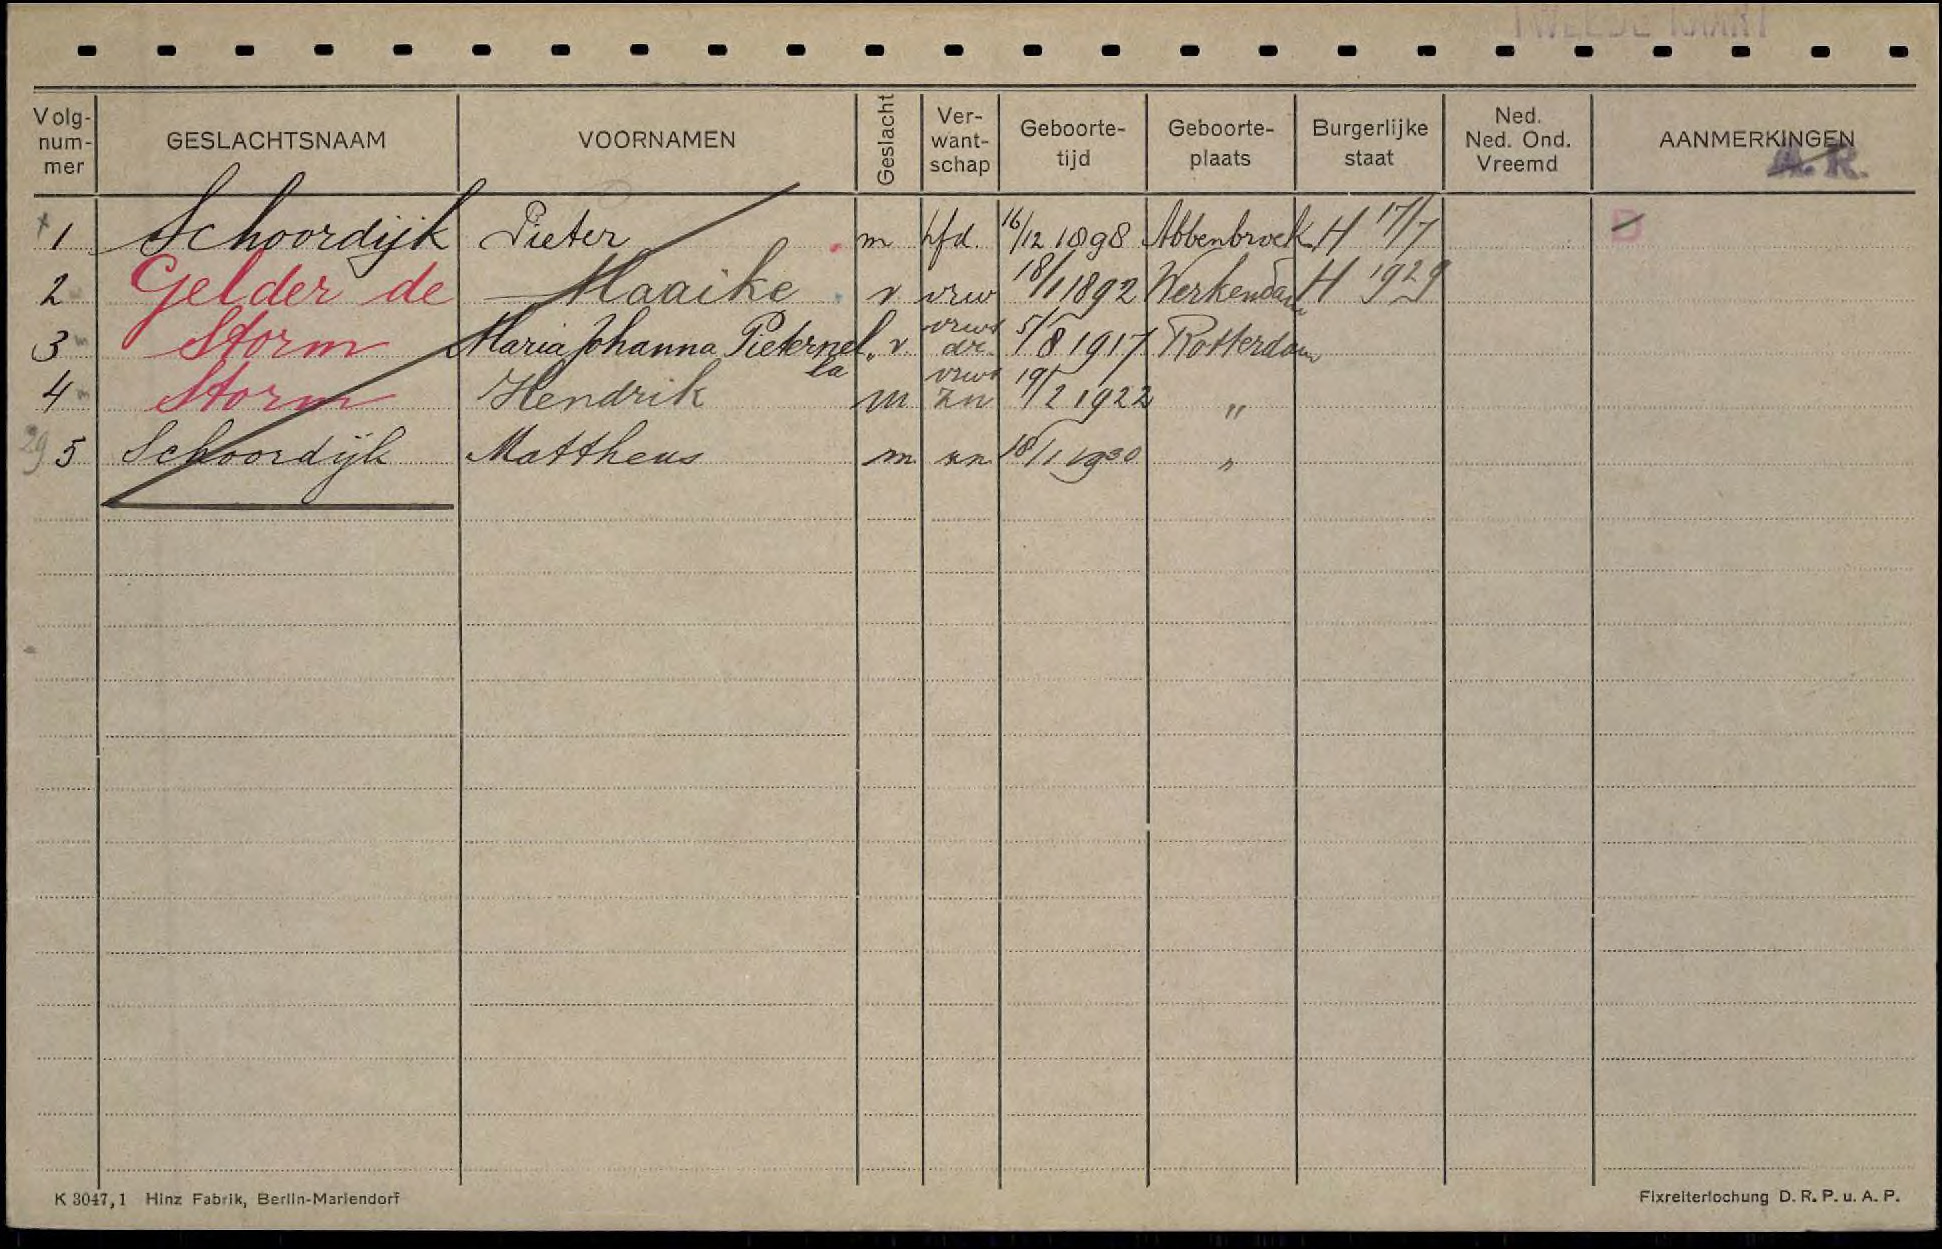 TWEEDE KAART
Volg-
num-
mer
GESLACHTSNAAM
VOORNAMEN
Geslacht
Ver-
want-
schap
Geboorte-
tijd
Geboorte-
plaats
Burgerlijke
staat
Ned.
Ned. Ond.
Vreemd
AANMERKINGEN
A. R.
1 Schoordijk Pieter m hfd. 16/12 1898 Abbenbroek H 17/7 B
2 Gelder de Maaike v vrw 18/1 1892 Werkendam H 1929
3 Storm Maria Johanna Pieternella v vrws dr. 5/8 1917 Rotterdam
4 Storm Hendrik m vrws zn 19/2 1922 "
29 5 Schoordijk Mattheus m zn 18/1 1930 "
K 3047,1 Hinz Fabrik, Berlin-Mariendorf
Fixreiterlochung D. R. P. u. A. P.